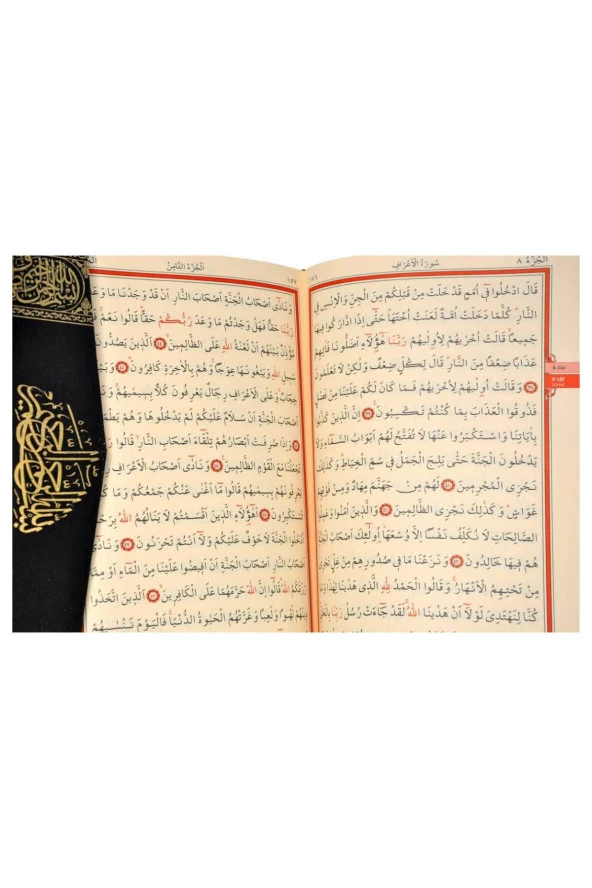 اَلْجُزْءُ ٨
سُورَةُ الْاَعْرَافِ
١٥٤
قَالَ ادْخُلُوا فٖٓي اُمَمٍ قَدْ خَلَتْ مِنْ قَبْلِكُمْ مِنَ الْجِنِّ وَالْاِنْسِ فِي
النَّارِۜ كُلَّمَا دَخَلَتْ اُمَّةٌ لَعَنَتْ اُخْتَهَاۜ حَتّٰٓى اِذَا ادَّارَكُوا فٖيهَا
جَمٖيعًاۙ قَالَتْ اُخْرٰيهُمْ لِاُو۫لٰيهُمْ رَبَّنَا هٰٓؤُ۬لَٓاءِ اَضَلُّونَا فَاٰتِهِمْ
عَذَابًا ضِعْفًا مِنَ النَّارِۜ قَالَ لِكُلٍّ ضِعْفٌ وَلٰكِنْ لَا تَعْلَمُونَ
وَقَالَتْ اُو۫لٰيهُمْ لِاُخْرٰيهُمْ فَمَا كَانَ لَكُمْ عَلَيْنَا مِنْ فَضْلٍ
فَذُوقُوا الْعَذَابَ بِمَا كُنْتُمْ تَكْسِبُونَ اِنَّ الَّذٖينَ كَذَّبُوا
بِاٰيَاتِنَا وَاسْتَكْبَرُوا عَنْهَا لَا تُفَتَّحُ لَهُمْ اَبْوَابُ السَّمَٓاءِ وَلَا
يَدْخُلُونَ الْجَنَّةَ حَتّٰى يَلِجَ الْجَمَلُ فٖي سَمِّ الْخِيَاطِۜ وَكَذٰلِكَ
نَجْزِي الْمُجْرِمٖينَ لَهُمْ مِنْ جَهَنَّمَ مِهَادٌ وَمِنْ فَوْقِهِمْ
غَوَاشٍۜ وَكَذٰلِكَ نَجْزِي الظَّالِمٖينَ وَالَّذٖينَ اٰمَنُوا وَعَمِلُوا
الصَّالِحَاتِ لَا نُكَلِّفُ نَفْسًا اِلَّا وُسْعَهَاۘ اُو۬لٰٓئِكَ اَصْحَابُ الْجَنَّةِۚ
هُمْ فٖيهَا خَالِدُونَ وَنَزَعْنَا مَا فٖي صُدُورِهِمْ مِنْ غِلٍّ تَجْرٖي
مِنْ تَحْتِهِمُ الْاَنْهَارُۚ وَقَالُوا الْحَمْدُ لِلّٰهِ الَّذٖي هَدٰينَا لِهٰذَا وَمَا
كُنَّا لِنَهْتَدِيَ لَوْلَٓا اَنْ هَدٰينَا اللّٰهُۚ لَقَدْ جَٓاءَتْ رُسُلُ رَبِّنَا بِالْحَقِّۜ
8. Cüz
A'râf
١٥٥
اَلْجُزْءُ الثَّامِنُ
وَنَادٰٓى اَصْحَابُ الْجَنَّةِ اَصْحَابَ النَّارِ اَنْ قَدْ وَجَدْنَا مَا وَعَدَ
رَبُّنَا حَقًّا فَهَلْ وَجَدْتُمْ مَا وَعَدَ رَبُّكُمْ حَقًّاۜ قَالُوا نَعَمْۚ
فَاَذَّنَ مُؤَذِّنٌ بَيْنَهُمْ اَنْ لَعْنَةُ اللّٰهِ عَلَى الظَّالِمٖينَ اَلَّذٖينَ يَصُدُّونَ
سَبٖيلِ اللّٰهِ وَيَبْغُونَهَا عِوَجًاۚ وَهُمْ بِالْاٰخِرَةِ كَافِرُونَ
حِجَابٌۚ وَعَلَى الْاَعْرَافِ رِجَالٌ يَعْرِفُونَ كُلًّا بِسٖيمٰيهُمْۚ
اَصْحَابَ الْجَنَّةِ اَنْ سَلَامٌ عَلَيْكُمْ لَمْ يَدْخُلُوهَا وَهُمْ
وَاِذَا صُرِفَتْ اَبْصَارُهُمْ تِلْقَٓاءَ اَصْحَابِ النَّارِۙ قَالُوا
تَجْعَلْنَا مَعَ الْقَوْمِ الظَّالِمٖينَ وَنَادٰٓى اَصْحَابُ الْاَعْرَافِ
يَعْرِفُونَهُمْ بِسٖيمٰيهُمْ قَالُوا مَٓا اَغْنٰى عَنْكُمْ جَمْعُكُمْ وَمَا
تَسْتَكْبِرُونَ اَهٰٓؤُ۬لَٓاءِ الَّذٖينَ اَقْسَمْتُمْ لَا يَنَالُهُمُ اللّٰهُ
اُدْخُلُوا الْجَنَّةَ لَا خَوْفٌ عَلَيْكُمْ وَلَٓا اَنْتُمْ تَحْزَنُونَ وَنَادٰٓى
اَصْحَابُ النَّارِ اَصْحَابَ الْجَنَّةِ اَنْ اَفٖيضُوا عَلَيْنَا مِنَ الْمَٓاءِ اَوْ مِمَّا
رَزَقَكُمُ اللّٰهُۜ قَالُٓوا اِنَّ اللّٰهَ حَرَّمَهُمَا عَلَى الْكَافِرٖينَ اَلَّذٖينَ اتَّخَذُوا
دٖينَهُمْ لَهْوًا وَلَعِبًا وَغَرَّتْهُمُ الْحَيٰوةُ الدُّنْيَاۚ فَالْيَوْمَ نَنْسٰيهُمْ